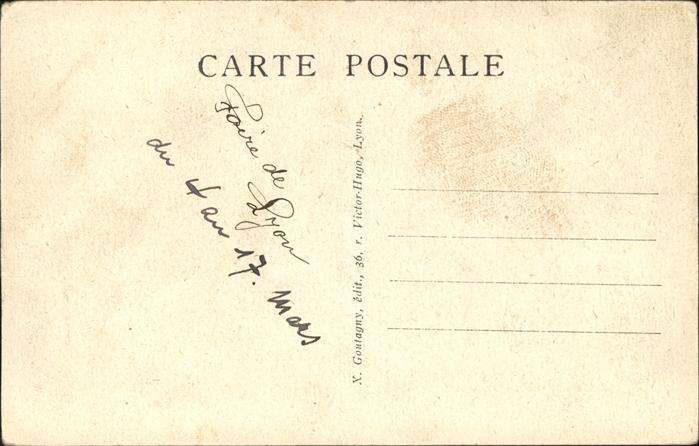 CARTE POSTALE
Foire de Lyon
du 4 au 17. Mars
X. Goutagny, édit., 36, r. Victor-Hugo, Lyon.